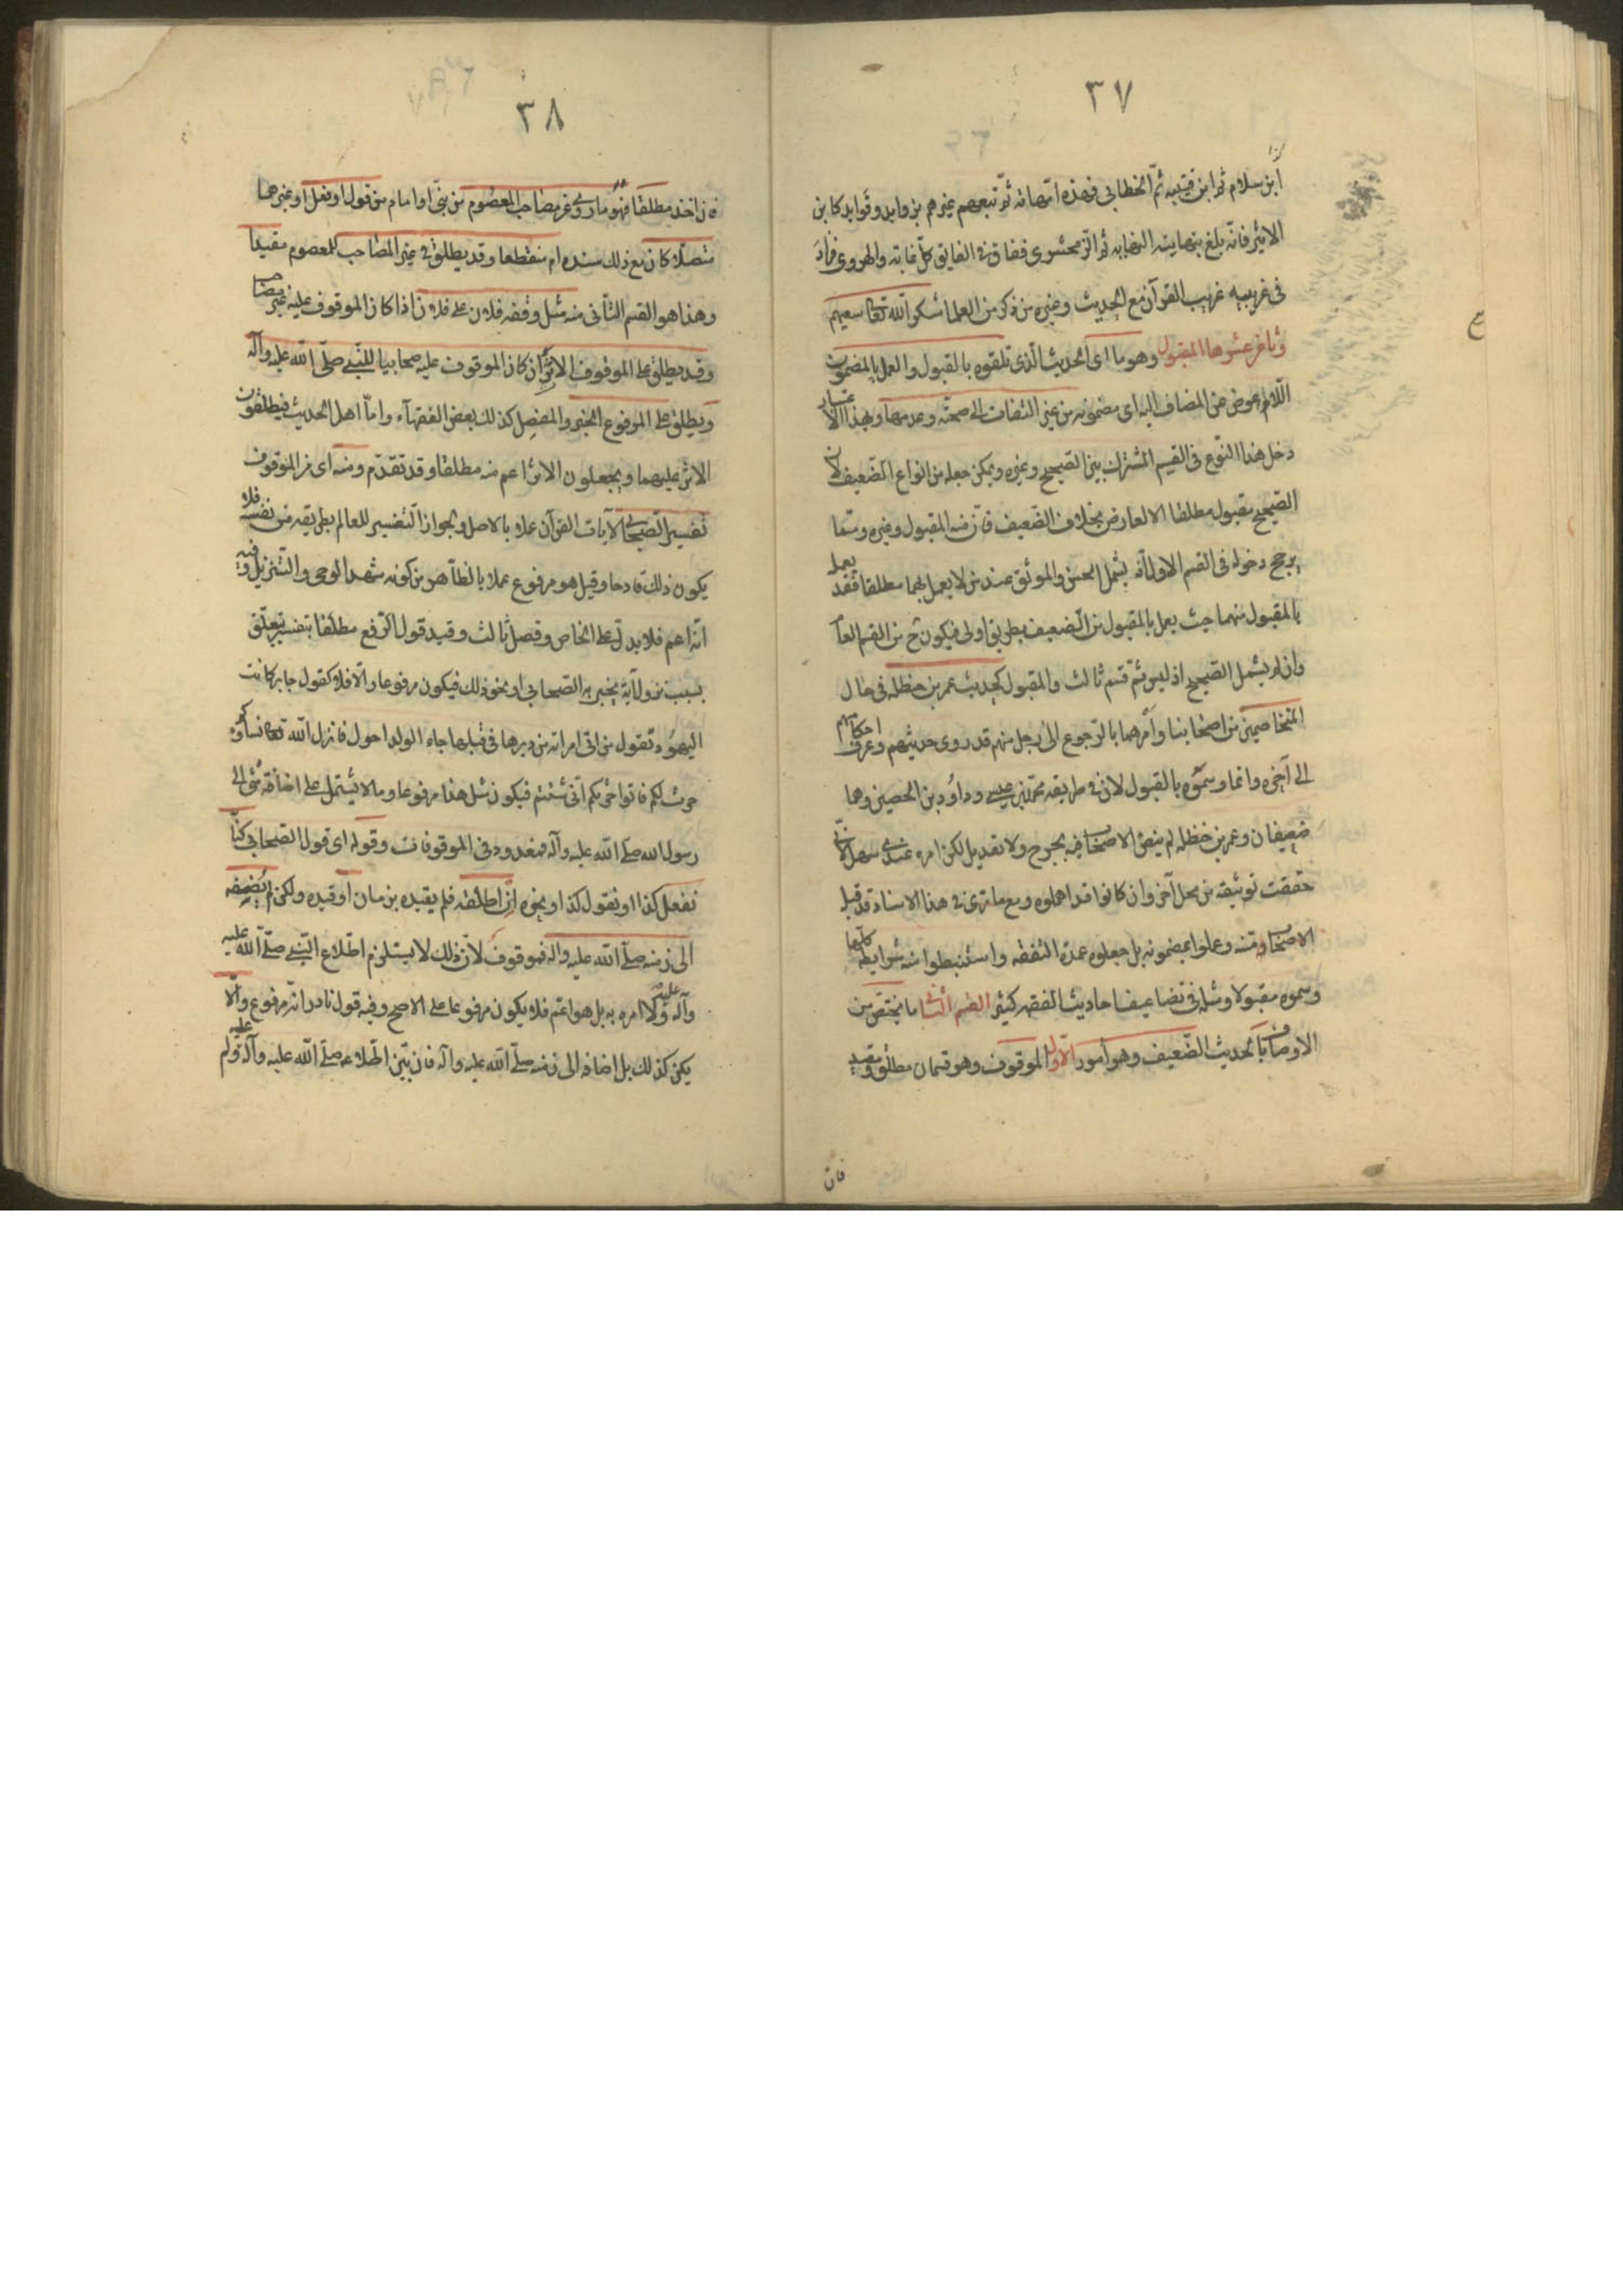 ٣٧
ابن سلام ثم ابن قتيبه ثمّ الخطابى فهذه امهاته ثمّ تبعهم غيرهم بزوايد وفوايد كابن
الاثير فانّه بلغ بنهايته النهايه ثم الزمخشرى ففاق فى الفايق كلّ غايته والهروى فزاد
فى غريبيه غريب القرآن مع الحديث وغيره من ذكر من العلما شكر اللّه تعا سعيهم
وثامن عشرها المقبول وهو ما اى الحديث الّذى تلقوه بالقبول والعمل بالمضمون
اللّام عوض عن المضاف اليه اى مضمونه من غير التفات الى صحتّه وعدمها وبهذا الاعتبار
دخل هذا النّوع فى القسم المشترك بين الصّحيح وغيره ويمكن جعله من انواع الضّعيف لان
الصّحيح مقبول مطلقا الا لعارض بخلاف الضّعيف فانّ منه المقبول وغيره وممّا
يرجح دخوله فى القسم الاول انّه يشمل الحسن والموثق عند من لا يعمل بهما مطلقا فقد يعمل
بالمقبول منهما حيث يعمل بالمقبول من الضعيف بطريق اولى فيكون ح من القسم العام
وان لم يشمل الصّحيح اذ ليس ثمّ قسم ثالث والمقبول كحديث عمر بن حنظله فى حال
المتخاصمين من اصحابنا وامرهما بالرّجوع الى رجل منهم قد روى حديثهم وعرف احكامهم
الى آخره وانما وسمّوه بالقبول لان فى طريقه محمّد بن عيسى وداود بن الحصين وهما
ضعيفان وعمر بن حنظله لم ينص الاصحاب فيه بجرح ولا تعديل لكن امره عندى سهل لانّى
حققت توثيقه من محل آخر وان كانوا قد اهملوه ومع ما ترى فى هذا الاسناد قد قبل
الاصحاب متنه وعملوا بمضمونه بل جعلوه عمدة التفقه واستنبطوا منه شرايطه كلّها
وسموه مقبولا ومثله فى تضاعيف احاديث الفقه كثير القسم الثانى ما يختصّ من
الاوصاف بالحديث الضّعيف وهو امور الاوّل الموقوف وهو قسمان مطلق ومقيد
فان
٣٨
فان اخذ مطلقا فهو ما روى عن مصاحب المعصوم من نبىّ او امام من قول او فعل او غيرهما
متصلا كان مع ذلك سنده ام منقطعا وقد يطلق فى غير المصاحب للمعصوم مقيدا
وهذا هو القسم الثانى منه مثل وقفه فلان على فلان اذا كان الموقوف عليه غير مصاحب
وقد يطلق على الموقوف الاثر ان كان الموقوف عليه صحابيا للنّبى صلّى اللّه عليه وآله
ويطلق على المرفوع الخبر والمفصل كذلك بعض الفقهآء وامّا اهل الحديث فيطلقون
الاثر عليهما ويجعلون الاثر اعم منه مطلقا وقد تقدّم ومنه اى من الموقوف
تفسير الصّحابى لآيات القرآن عملا بالاصل ولجواز التّفسير للعالم بطريقه من نفسه فلا
يكون ذلك قادحا وقيل هو مرفوع عملا بالظاهر من كونه شهد الوحى والتّنزيل وفيه
انّه اعم فلا يدلّ على الخاص وفصل ثالث وقيد قول الرّفع مطلقا بتفسير يتعلّق
بسبب نزول آية يخبر به الصّحابى او نحو ذلك فيكون مرفوعا والّا فلا كقول جابر كانت
اليهود تقول من اتى امراته من دبرها فى قبلها جاء الولد احول فانزل اللّه تعا نساؤكم
حرث لكم فاتوا حرثكم انّى شئتم فيكون مثل هذا مرفوعا وما لا يشتمل على اضافة شئ الى
رسول الله صلّى اللّه عليه وآله فمعدود فى الموقوفات وقوله اى قول الصّحابى كنّا
نفعل كذا او نقول كذا ونحوه ان اطلقه فلم يقيده بزمان او قيده ولكن لم يضفه
الى زمنه صلّى اللّه عليه وآله فموقوف لانّ ذلك لا يستلزم اطلاع النّبى صلّى اللّه عليه
وآله عليه ولا امره به بل هو اعم فلا يكون مرفوعا على الاصح وفيه قول نادر انّه مرفوع والّا
يكن كذلك بل اضافه الى زمنه صلّى اللّه عليه وآله فان بيّن اطّلاعه صلّى اللّه عليه وآله عليه ولم